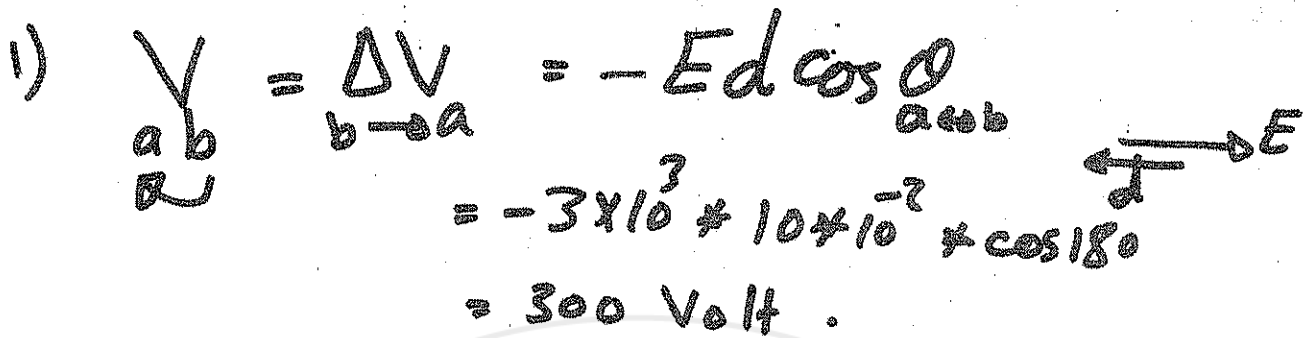 1) V ab = ΔV b→a = -Ed cos θ a↔b
E
d
= -3×10³ * 10*10⁻² * cos 180
= 300 Volt .